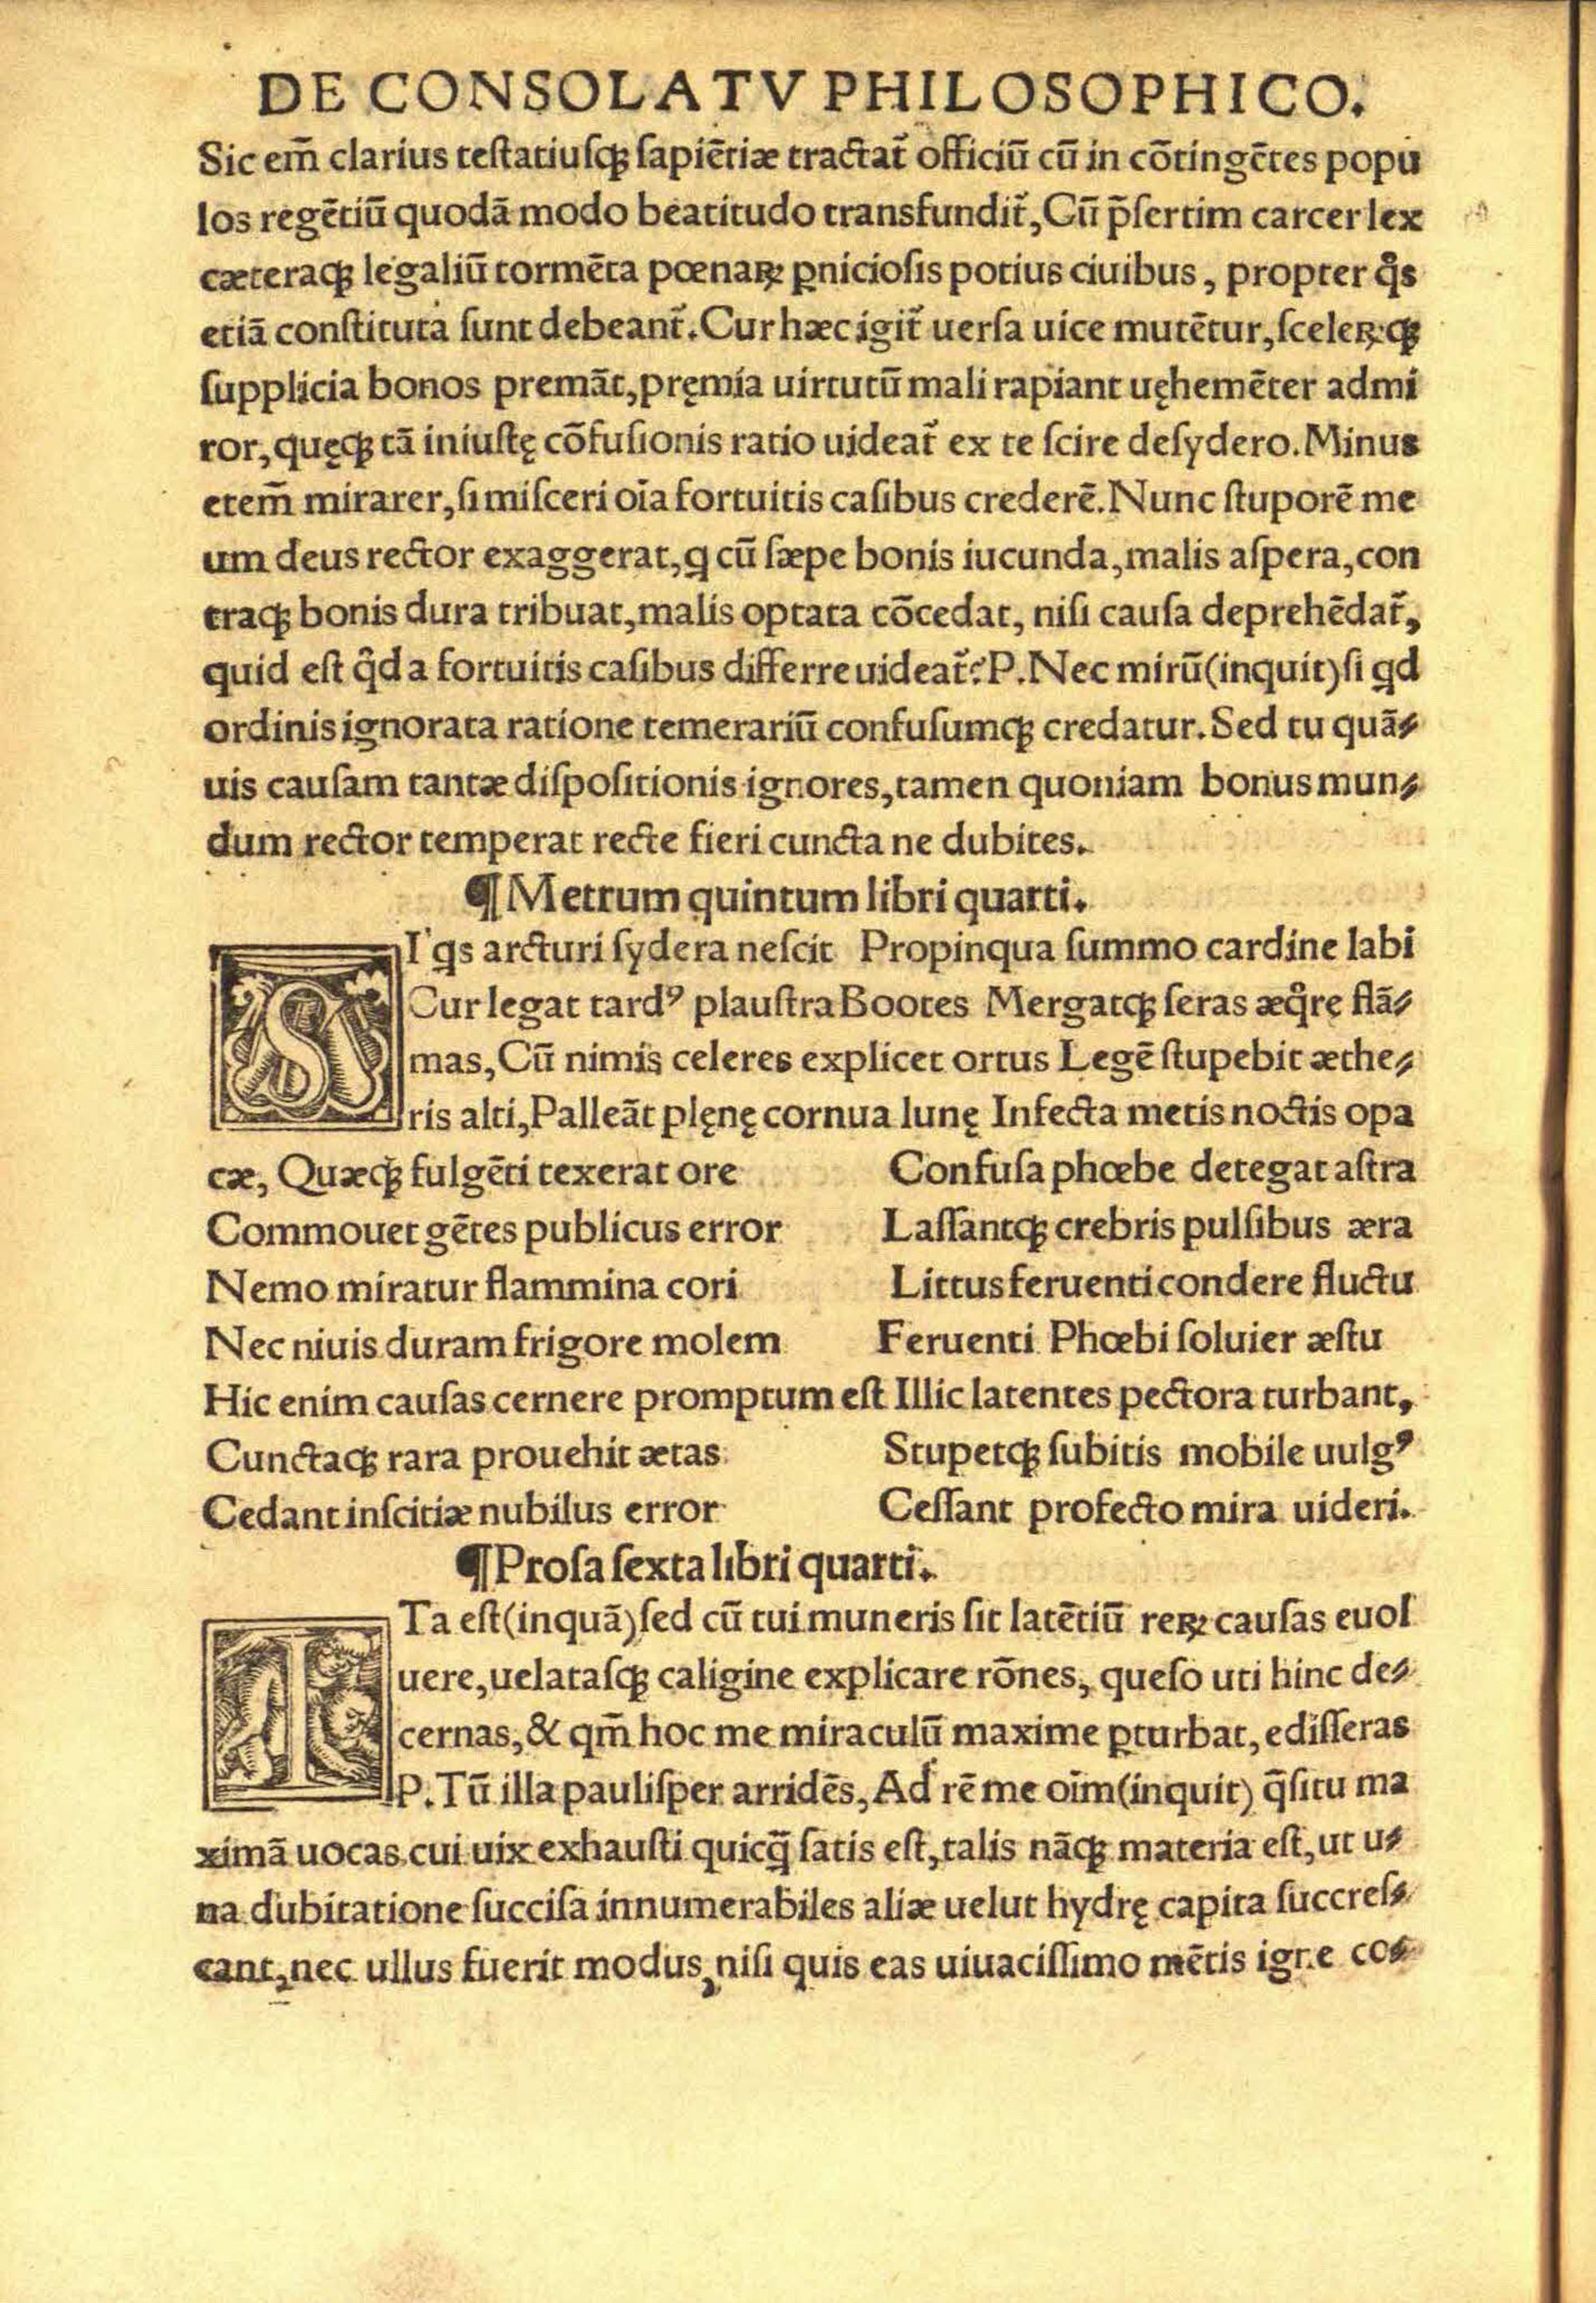 DE CONSOLATV PHILOSOPHICO.
Sic em̃ clarius testatiusqꝫ sapiẽtiæ tractat᷑ officiũ cũ in cõtingẽtes popu
los regẽtiũ quodã modo beatitudo transfundit᷑, Cũ p̃sertim carcer lex
cæteraqꝫ legaliũ tormẽta pœnaꝝ ꝑniciosis potius ciuibus, propter q̊s
etiã constituta sunt debeant᷑. Cur hæc igit᷑ uersa uice mutẽtur, sceleꝝqꝫ
supplicia bonos premãt, pręmia uirtutũ mali rapiant uęhemẽter admi
ror, quęqꝫ tã iniustę cõfusionis ratio uideat᷑ ex te scire desydero. Minus
etem̃ mirarer, si misceri oĩa fortuitis casibus crederẽ. Nunc stuporẽ me
um deus rector exaggerat, ꝗ cũ sæpe bonis iucunda, malis aspera, con
traqꝫ bonis dura tribuat, malis optata cõcedat, nisi causa deprehẽdat᷑,
quid est q̊d a fortuitis casibus differre uideat᷑? P. Nec mirũ (inquit) si ꝗd
ordinis ignorata ratione temerariũ confusumqꝫ credatur. Sed tu quã⸗
uis causam tantæ dispositionis ignores, tamen quoniam bonus mun⸗
dum rector temperat recte fieri cuncta ne dubites.
¶ Metrum quintum libri quarti.
SI ꝗs arcturi sydera nescit Propinqua summo cardine labi
Cur legat tardꝰ plaustra Bootes Mergatqꝫ seras æq̊rę flã⸗
mas, Cũ nimis celeres explicet ortus Legẽ stupebit æthe⸗
ris alti, Palleãt plęnę cornua lunę Infecta metis noctis opa
cæ, Quæqꝫ fulgẽti texerat ore Confusa phœbe detegat astra
Commouet gẽtes publicus error Lassantqꝫ crebris pulsibus æra
Nemo miratur flammina cori Littus feruenti condere fluctu
Nec niuis duram frigore molem Feruenti Phœbi soluier æstu
Hic enim causas cernere promptum est Illic latentes pectora turbant,
Cunctaqꝫ rara prouehit ætas Stupetqꝫ subitis mobile uulgꝰ
Cedant inscitiæ nubilus error Cessant profecto mira uideri.
¶ Prosa sexta libri quarti.
ITa est (inquã) sed cũ tui muneris sit latẽtiũ reꝝ causas euol
uere, uelatasqꝫ caligine explicare rõnes, queso uti hinc de⸗
cernas, & qm̃ hoc me miraculũ maxime ꝑturbat, edisseras
P. Tũ illa paulisper arridẽs, Ad rẽ me oĩm (inquit) q̃situ ma
ximã uocas cui uix exhausti quicq̃ satis est, talis nãqꝫ materia est, ut u⸗
na dubitatione succisa innumerabiles aliæ uelut hydrę capita succres⸗
cant, nec ullus fuerit modus, nisi quis eas uiuacissimo mẽtis igne co⸗